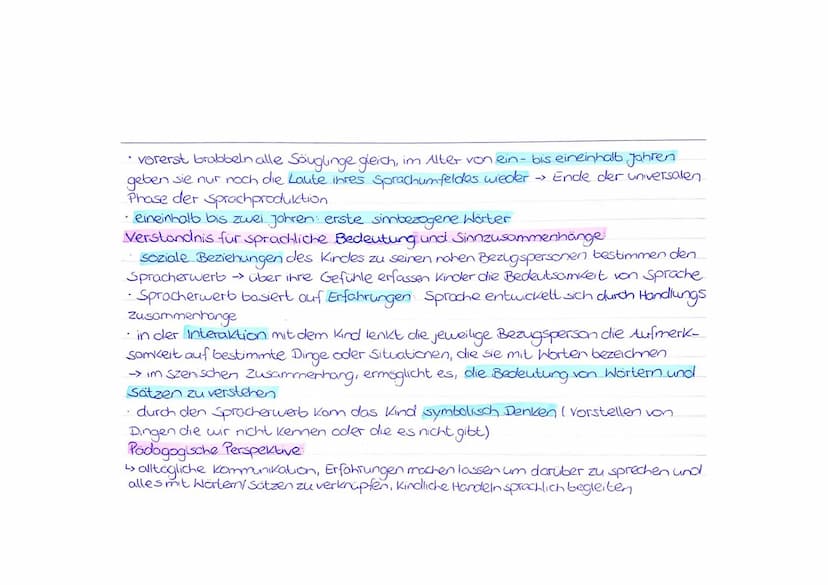 · vorerst brabbeln alle Säuglinge gleich, im Alter von ein- bis eineinhalb Jahren
geben sie nur noch die Laute ihres Sprachumfeldes wieder → Ende der universalen
Phase der Sprachproduktion
· eineinhalb bis zwei Jahren: erste sinnbezogene Wörter
Verständnis für sprachliche Bedeutung und Sinnzusammenhänge
· soziale Beziehungen des Kindes zu seinen nahen Bezugspersonen bestimmen den
Spracherwerb → über ihre Gefühle erfassen Kinder die Bedeutsamkeit von Sprache
· Spracherwerb basiert auf Erfahrungen: Sprache entwickelt sich durch Handlungs
zusammenhänge
· in der Interaktion mit dem Kind lenkt die jeweilige Bezugsperson die Aufmerk-
samkeit auf bestimmte Dinge oder Situationen, die sie mit Worten bezeichnen
→ im szenischen Zusammenhang, ermöglicht es, die Bedeutung von Wörtern und
Sätzen zu verstehen
· durch den Spracherwerb kann das Kind symbolisch Denken (Vorstellen von
Dingen die wir nicht kennen oder die es nicht gibt)
Pädagogische Perspektive
↳ alltägliche Kommunikation, Erfahrungen machen lassen um darüber zu sprechen und
alles mit Wörtern/Sätzen zu verknüpfen, Kindliche Handeln sprachlich begleiten